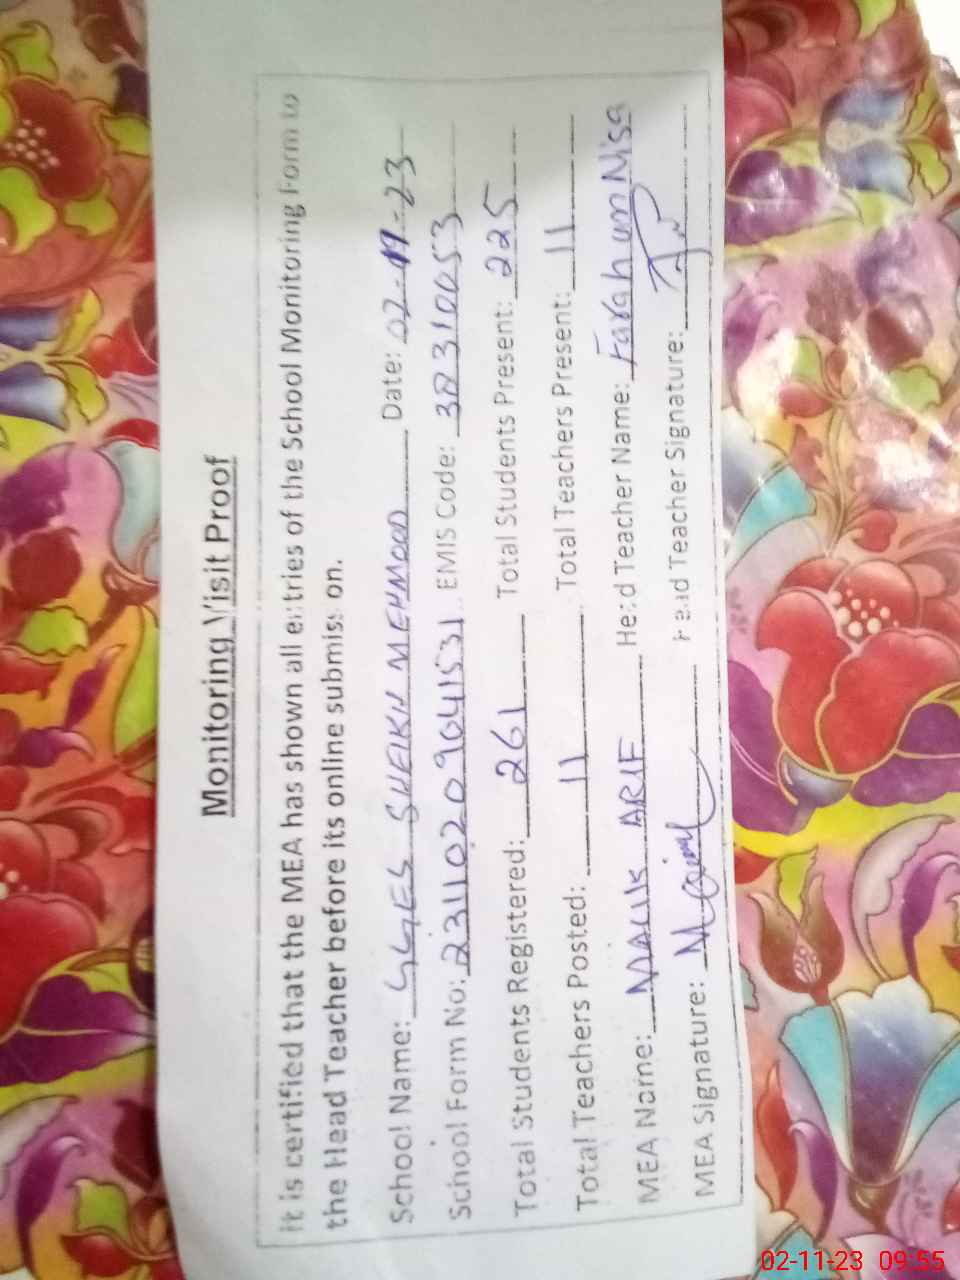 Monitoring Visit Proof
It is certified that the MEA has shown all entries of the School Monitoring Form to
the Head Teacher before its online submission.
School Name: GGES SHEIKH MEHMOOD Date: 02-11-23
School Form No: 23110209641531 EMIS Code: 38310053
Total Students Registered: 261 Total Students Present: 225
Total Teachers Posted: 11 Total Teachers Present: 11
MEA Name: MALIK ARIF Head Teacher Name: Farah un Nisa
MEA Signature: Head Teacher Signature:
02-11-23 09:55